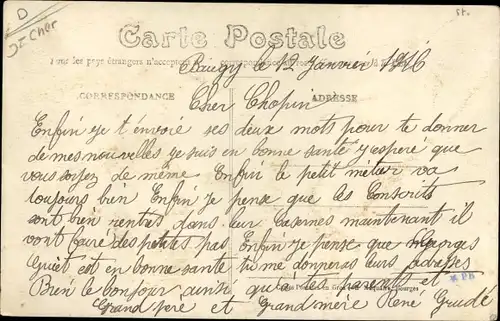 D
Dt Cher
St.
Carte Postale
Tous les pays étrangers n'acceptent pas
Baugy le 12 Janvier 1916
CORRESPONDANCE
ADRESSE
Cher Chopin
Enfin je t'envoie ses deux mots pour te donner
de mes nouvelles je suis en bonne santé j'espére que
vous soyez de même. Enfin le petit métier va
toujours bien Enfin je pense que les Conscrits
sont bien rentrés dans leur Casernes maintenant il
vont faire des petits pas Enfin je pense que Georges
Guiet est en bonne santé tu me donneras leurs adresses
Bien le bonjour ainsi qu'a tes parents et
Grand père et Grand mère René
*PB